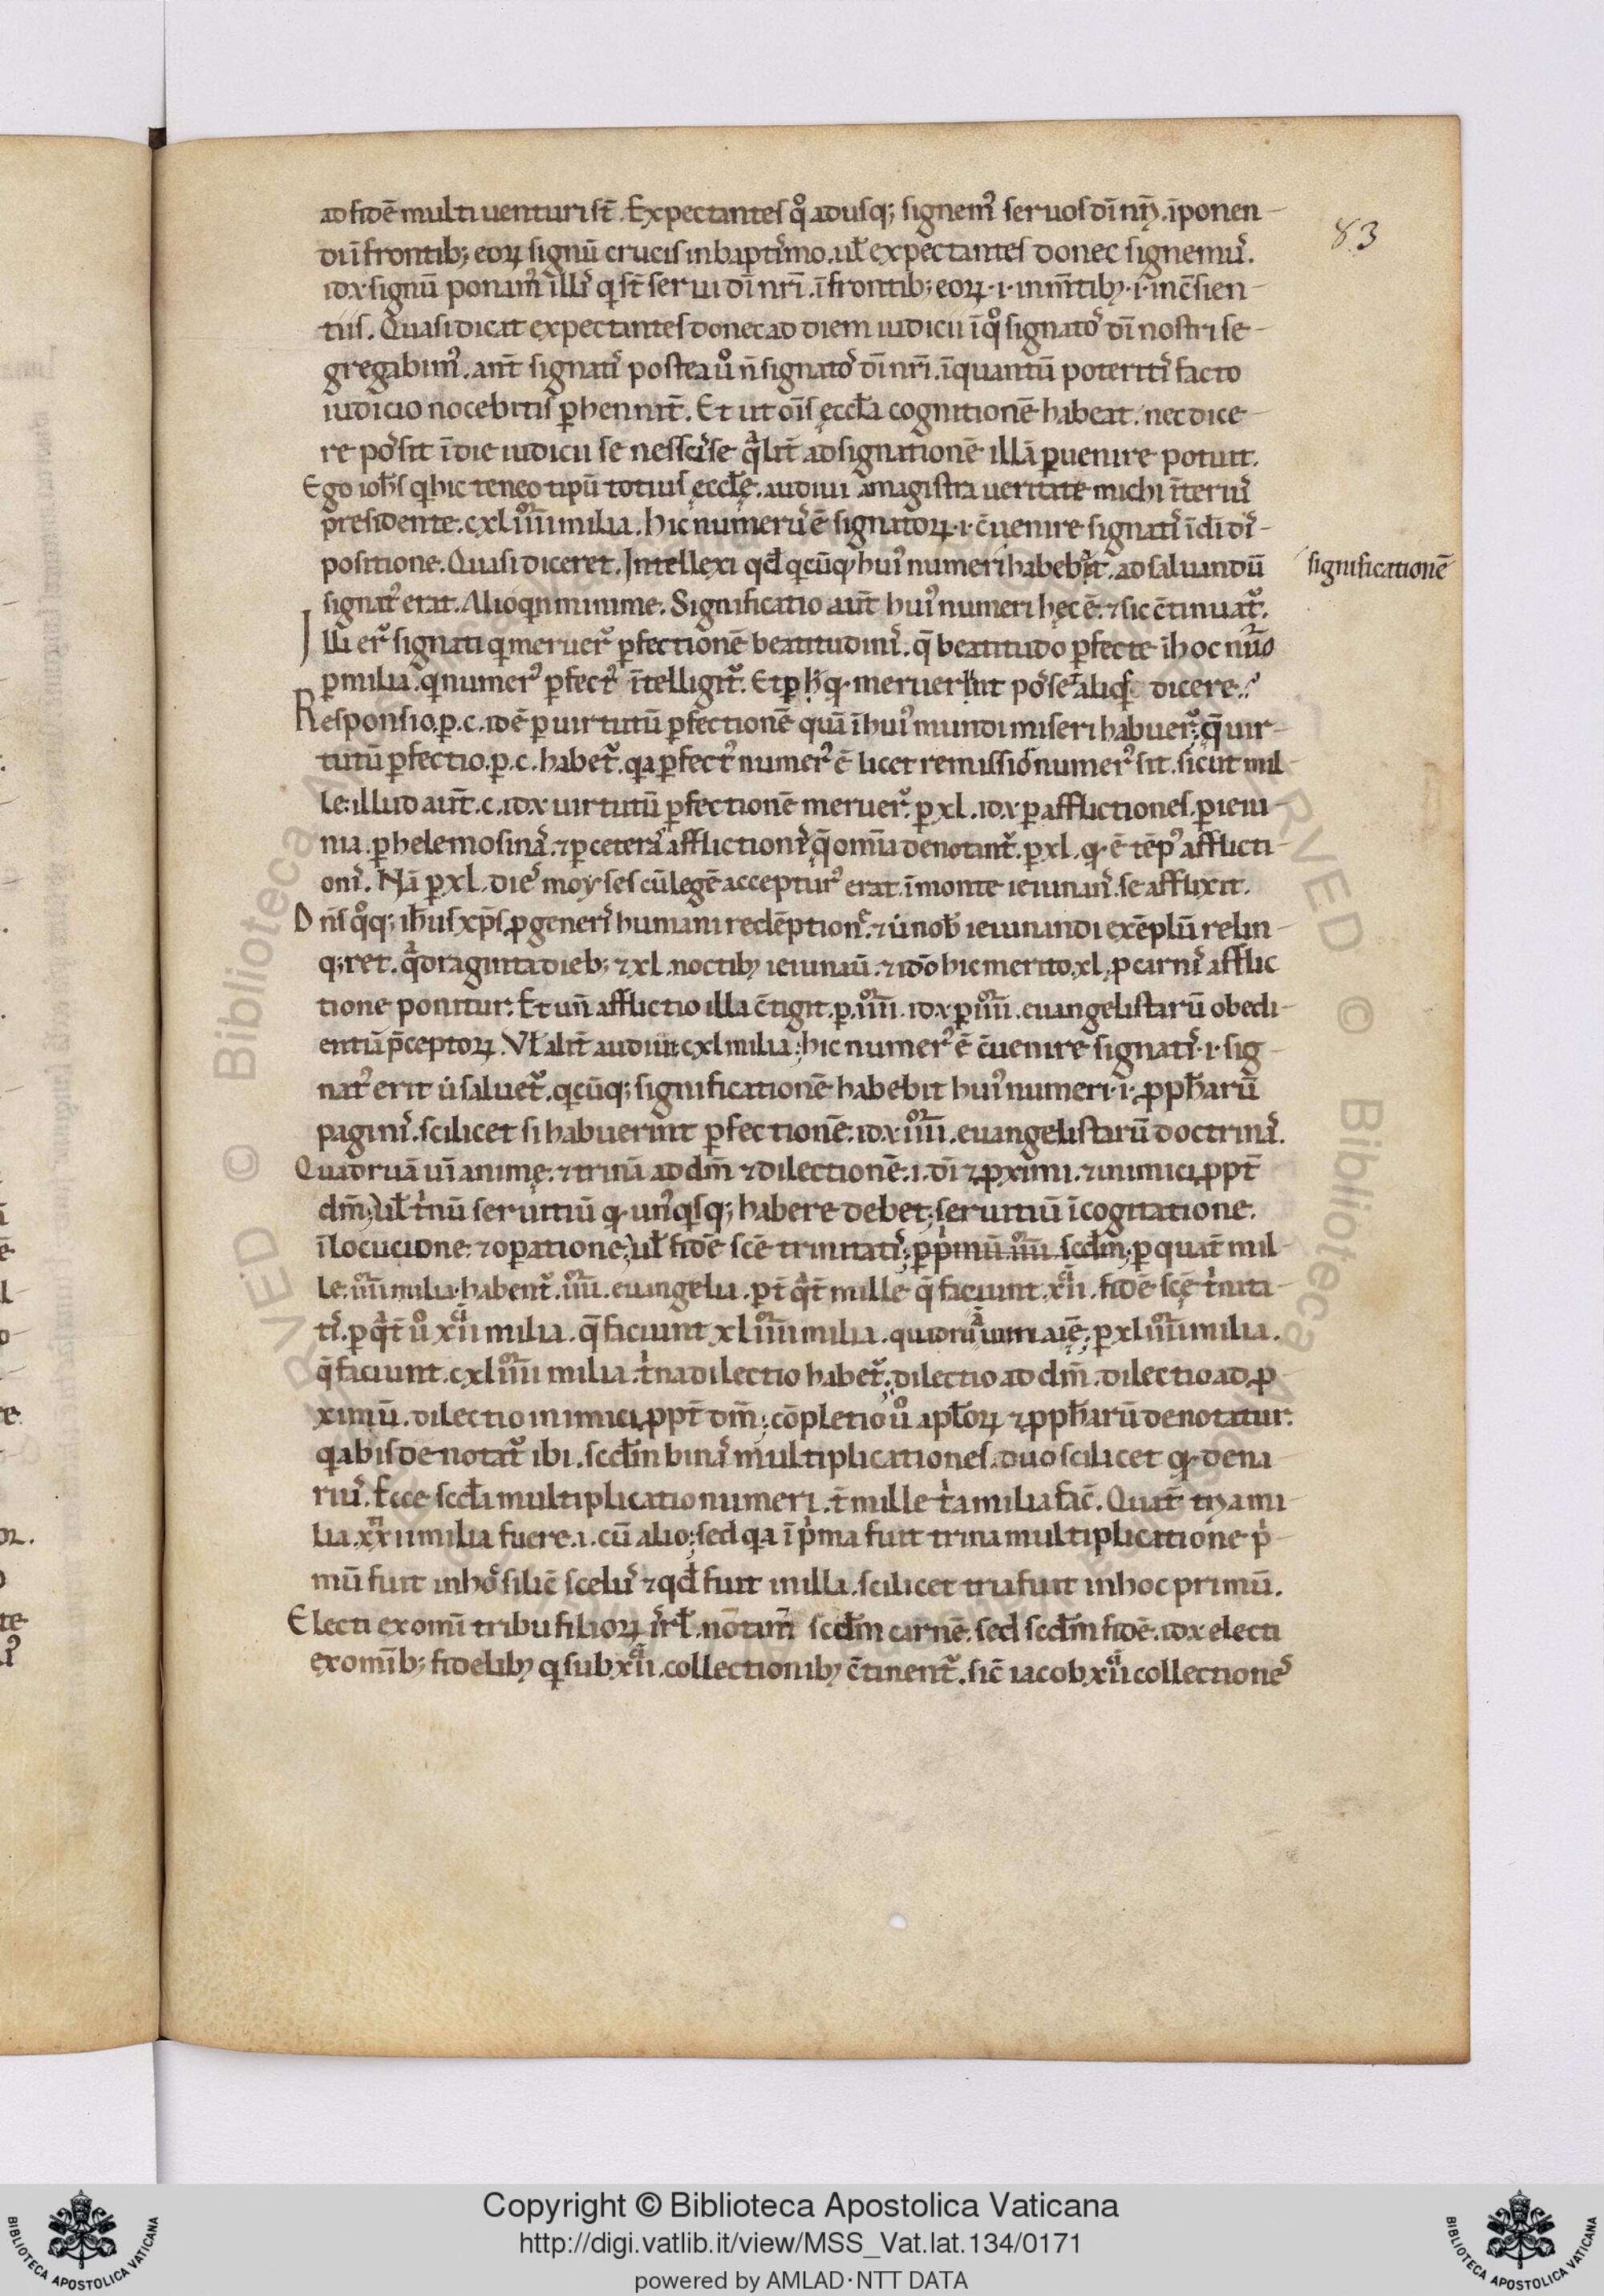 ad fidē multi uenturi st̄. Expectantes qͦ adusq; signemꝰ seruos dī nr̄i. īponen-
dī īfrontib; eoꝝ signū crucis in baptismo. ul̄ expectantes donec signemus.
idx signū ponam̄ illis qi st̄ serui dī nr̄i. ī frontib; eoꝝ .i. in m̄tibꝫ .i. in c̄sien-
tiis. Quasi dicat expectantes donec ad diem iudicii īqͦ signatos dī nostri se-
gregabimꝰ. ant̄ signatis postea uͦ n̄ signatos dī nr̄i. īquantū poteritis facto
iudicio nocebitis ꝑhennit̄. Et ut oīs ęccl̄a cognitionē habeat. nec dice-
re possit ī die iudicii se nescisse qͣlit̄ ad signationē illā ꝑuenire potuit.
Ego ioh̄s qi hic teneo tipū totius ęccl̄ę. audiui a magistra ueritate michi īterius
presidente. cxl iiiiͦͬ milia. hic numerus ē signatoꝝ .i. c̄uenire signatis ī dī dis-
positione. Quasi diceret. Intellexi qd̄ qicūqꝫ huiꝰ numeri habebat. ad saluandū
significationē
signatꝰ erat. Alioqin minime. Significatio aut̄ huiꝰ numeri hęc ē. ⁊ sic c̄tinuat̃.
Illi er̃ signati qi meruer̃ ꝑfectionē beatitudinis. q̄ beatitudo ꝑfecte ī hoc nūo
ꝑ milia. qi numerꝰ ꝑfectꝰ ītelligit̃. Et ꝑ h̄ qꝫ meruerint posset aliqs dicere.
Responsio. ꝑ .c. id ē ꝑ uirtutū ꝑfectionē quā ī huiꝰ mundi miseri habuer̃; q̄ uir-
tutū ꝑfectio. ꝑ .c. habet̃. qia ꝑfectꝰ numerꝰ ē licet remissior numerꝰ sit. sicut mil-
le. illud aut̄ .c. idx uirtutū ꝑfectionē meruer̃. ꝑ xl. idx ꝑ afflictiones. ꝑ ieiu-
nia. ꝑ helemosinas. ⁊ ꝑ ceteras afflictiones q̄ omīa denotant̃. ꝑ xl. qꝫ ē tēpꝰ afflicti-
onis. Nā ꝑ xl. dies moyses cū legē accepturꝰ erat. ī monte ieiunans. se afflixit.
Dn̄s qͦq; ih̄us xp̄s ꝓ generis humani redēptione. ⁊ ut nob̄ ieiunandi exēplū relin-
q;ret. qͣdraginta dieb; ⁊ xl. noctibꝫ ieiunau. ⁊ idō hic merito. xl. ꝓ carnis afflic
tione ponitur. Et un̄ afflictio illa c̄tigit. ꝑ .iiiiͦͬ. idx ꝑ iiiiͦͬ. euangelistarū obedi-
entiū p̄ceptoꝝ. Vl̄ alit̄ audiui cxl milia; hic numerꝰ ē c̄uenire signatis .i. sig-
natꝰ erit ut saluet̃. qicūq; significationē habebit huiꝰ numeri .i. ꝓph̄arū
paginis. scilicet si habuerint ꝑfectionē. idx iiiiͦͬ. euangelistarū doctrinas.
Quadruā uī animę. ⁊ trinā ad dm̄ ⁊ dilectionē .i. dī ⁊ ꝓximi. ⁊ inimici ꝓpt̄
dm̄; ul̄ trinū seruitiū qꝫ unꝰqisq; habere debet; seruitiū ī cogitatione.
ī locucione. ⁊ oꝑatione; ul̄ fidē scē trinitatis; ꝑ pͥmū iiiiͦͬ scdm̄; ꝑ quat̄ mil-
le. iiiiͦͬ milia habent̃. iiiiͦͬ. euangelia. ꝑ t̄ qͣt̄ mille q̄ faciunt. xii. fidē scę trinita-
tis. ꝑ qͣt̄ uͦ xii milia. q̄ faciunt xl iiiiͦͬ milia. quadruā uim aīę; ꝑ xl iiiiͦͬ milia.
q̄ faciunt. cxl iiiiͦͬ milia. trina dilectio habet̃; dilectio ad dm̄. dilectio ad ꝓ-
ximū. dilectio inimici ꝓpt̄ dm̄; cōpletio uͦ apl̄oꝝ ⁊ ꝓph̄arū denotatur.
qia bis denotat̃ ibi. scdm̄ binas multiplicationes. duo scilicet qꝫ dena-
rius. Ecce scd̄a multiplicatio numeri. t̄ mille tria milia fac̄. Quat̄ tria mi-
lia. xii milia fuere .i. cū alio; sed qia ī pͥma fuit trina multiplicatione pͥ-
mū fuit in hoͦ silic̄ scelus ⁊ qd̄ fuit in illa. scilicet tria fuit in hoc primū.
Electi ex omī tribu filioꝝ isrl̄. nō tam̄ scdm̄ carnē. sed scdm̄ fidē. idx electi
ex omīb; fidelibꝫ qi sub xii. collectionibꝫ c̄tinent̃. sic̄ iacob xii collectiones
83
Copyright © Biblioteca Apostolica Vaticana
http://digi.vatlib.it/view/MSS_Vat.lat.134/0171
powered by AMLAD·NTT DATA
BIBLIOTECA APOSTOLICA VATICANA
BIBLIOTECA APOSTOLICA VATICANA